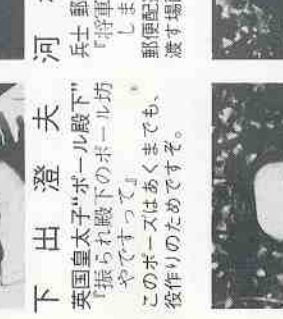 下出澄夫
英国皇太子“ポール殿下”
『振られ殿下のポール坊
やですって』
このポーズはあくまでも、
役作りのためですぞ。
河
兵士 郵
『将軍
しま
郵便配
渡す場